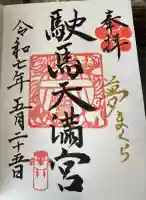 奉拝
夢まくら
駛馬天満宮
令和七年五月二十五日